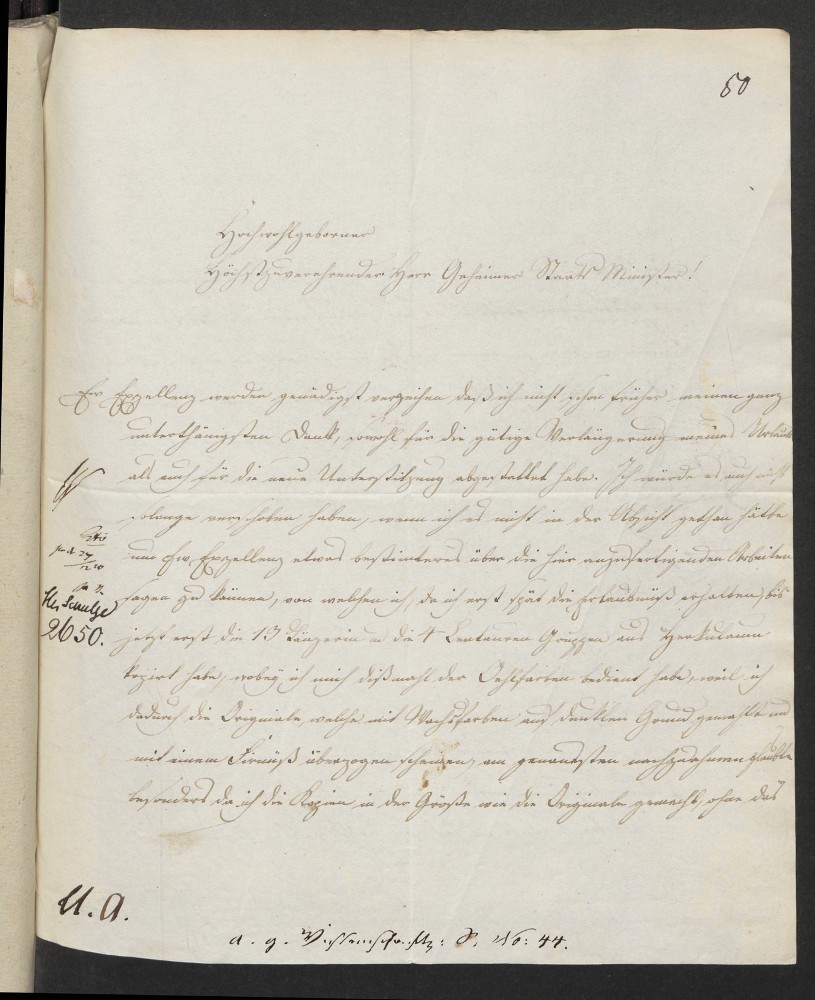 50
Hochwohlgeborner
Höchstzuverehrender Herr Geheimer Staats Minister!
Ew Exzellenz werden genädigst verzeihen daß ich nicht schon früher meinen ganz
unterthänigsten Dank, sowohl für die gütige Verlängerung meines Urlaubs
als auch für die neue Unterstützung abgestattet habe. Ich würde es auch nicht
solange verschoben haben, wenn ich es nicht in der Absicht gethan hätte
um Ew. Exzellenz etwas bestimteres über die hier anzufertigenden Arbeiten
sagen zu können, von welchen ich, da ich erst spät die Erlaubniß erhalten, bis
jetzt erst die 13 Tänzerin u die 4 Centauren Gruppen aus Herkulanum
kopirt habe, wobey ich mich dißmahl der Oehlfarben bedient habe, weil ich
dadurch die Originale, welche mit Wachsfarben auf dunklen Grund gemahlt und
mit einem Firniß überzogen scheinen, am genauesten nachzuahmen glaubte
besonders da ich die Kopien in der Größe wie die Originale gemacht, ohne das
H. Schulze
2650.
U. A.
a. g. : No: 44.